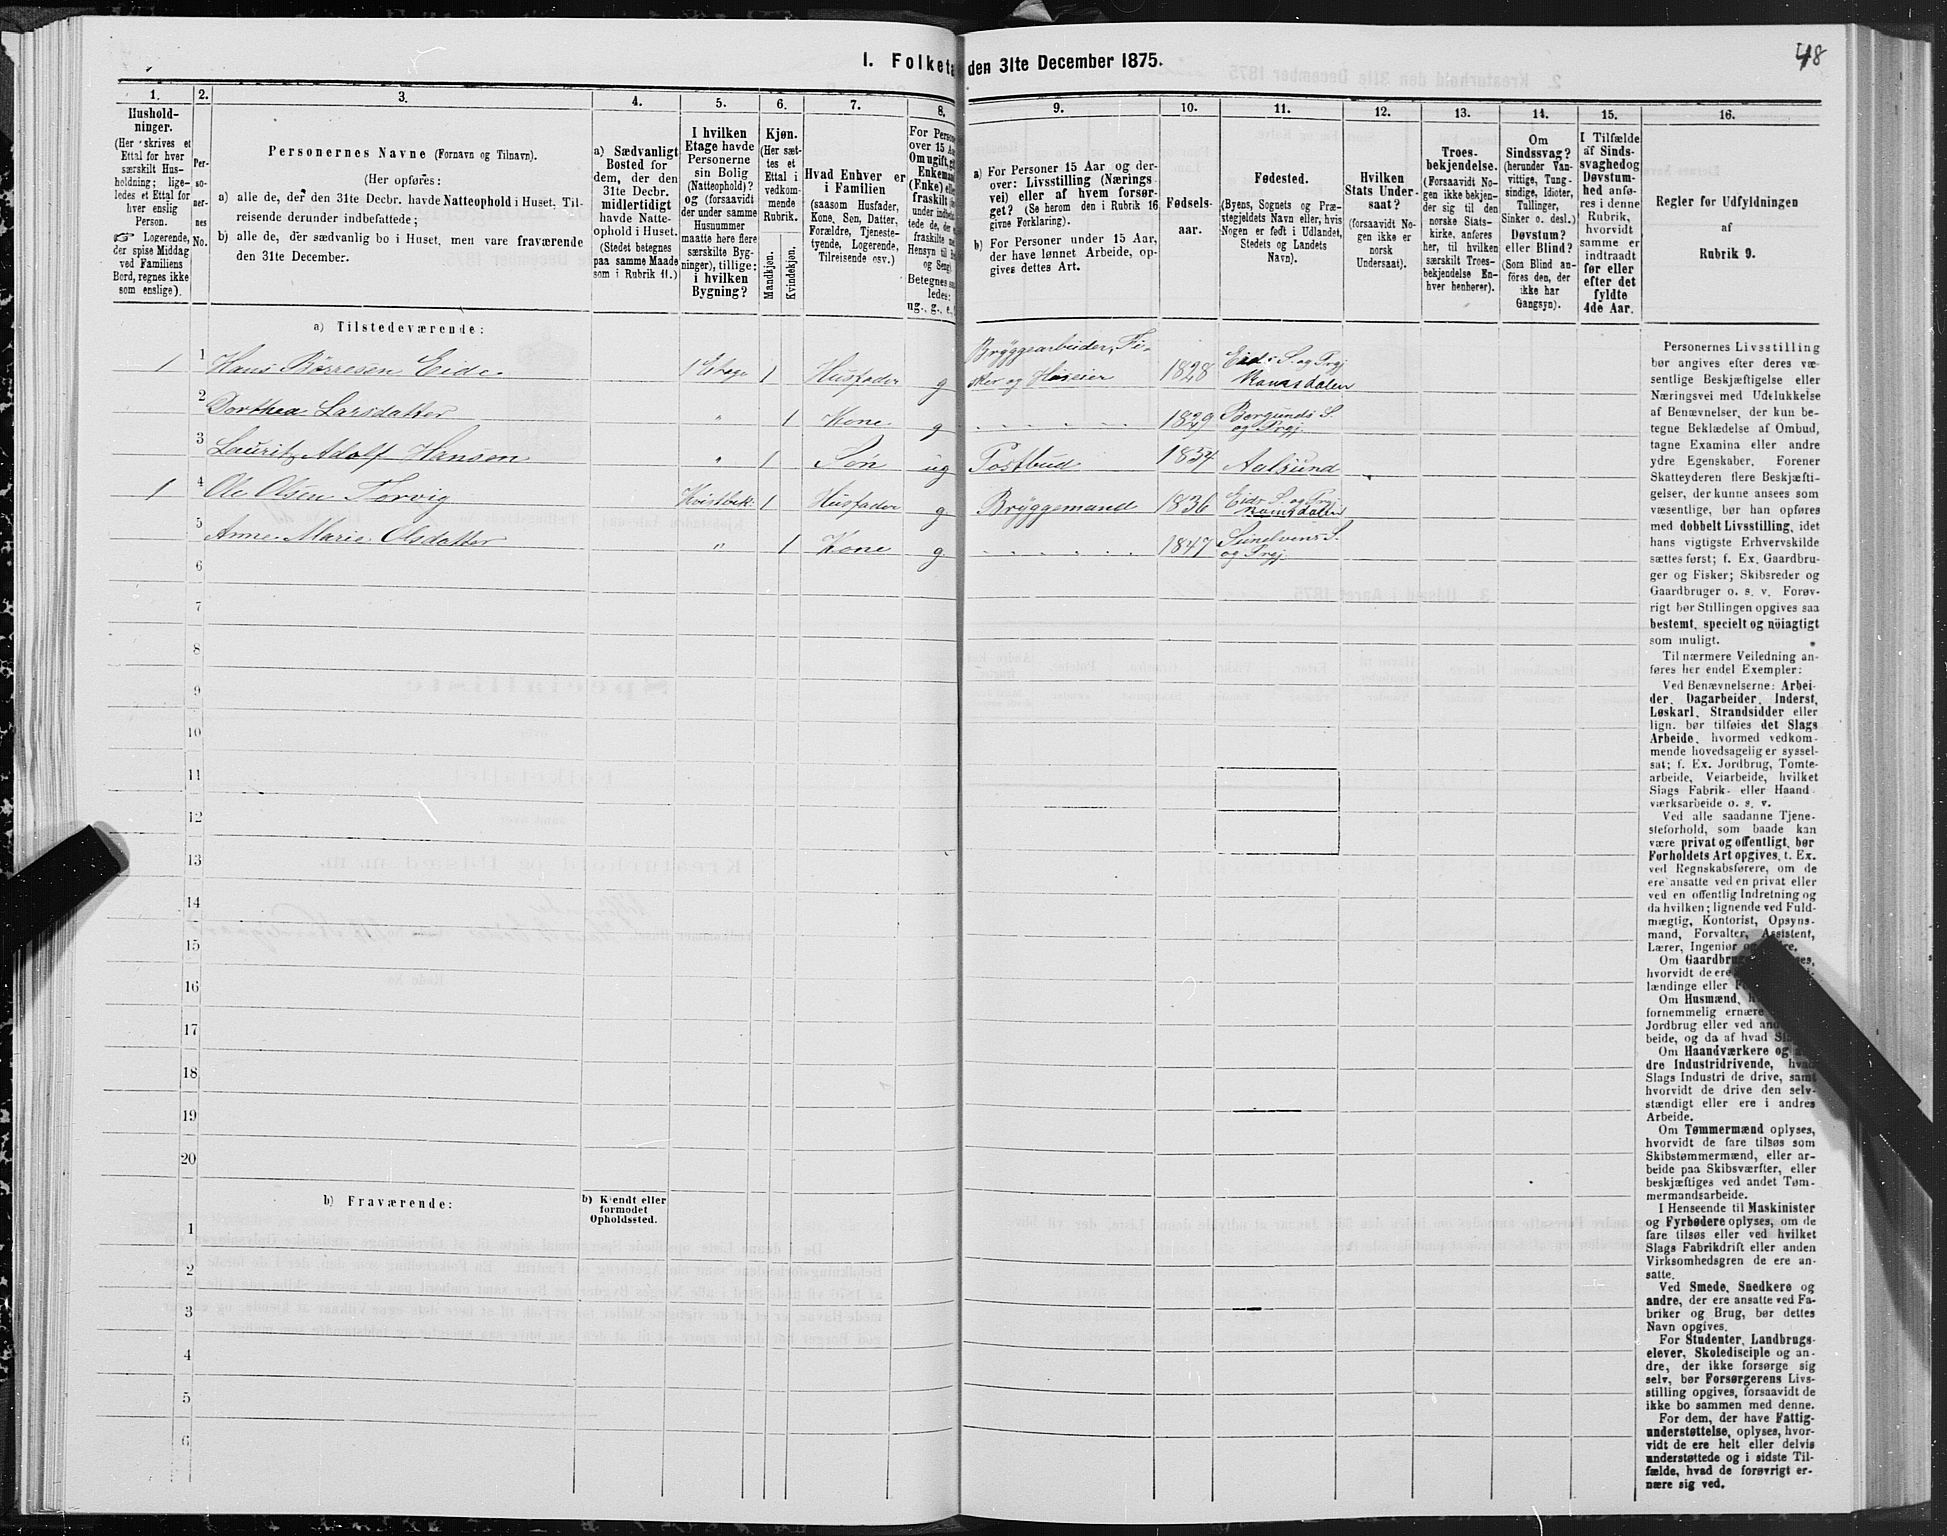 48
I. Folketæ den 31te December 1875.
1.
2.
3.
4.
5.
6.
7.
8.
9.
10.
11.
12.
13.
14.
15.
16.
Hushold-
ninger.
(Her skrives et
Ettal for hver
særskilt Hus-
holdning; lige-
ledes et Ettal for
hver enslig
Person.
☞ Logerende,
der spise Middag
ved Familiens
Bord, regnes ikke
som enslige).
Per-
so-
ner-
nes
No.
Personernes Navne (Fornavn og Tilnavn).
(Her opføres:
a) alle de, der den 31te Decbr. havde Natteophold i Huset, Til-
reisende derunder indbefattede;
b) alle de, der sædvanlig bo i Huset, men vare fraværende
den 31te December.
a) Sædvanligt
Bosted for
dem, der den
31te Decbr.
midlertidigt
havde Natte-
ophold i Huset.
(Stedet betegnes
paa samme Maade
som i Rubrik 11.)
I hvilken
Etage havde
Personerne
sin Bolig
(Natteophold)?
og (forsaavidt
der under samme
Husnummer
maatte høre flere
særskilte Byg-
ninger), tillige:
i hvilken
Bygning?
Kjøn.
(Her sæt-
tes et
Ettal i
vedkom-
mende
Rubrik.
Mandkjøn.
Kvindekjøn.
Hvad Enhver er
i Familien
(saasom Husfader,
Kone, Søn, Datter,
Forældre, Tjeneste-
tyende, Logerende,
Tilreisende osv.)
For Persone
over 15 Aa
Om ugift, g
Enkeman
(Enke) elle
fraskilt
under indbe
tede de, der e
fraskilte
Hensyn til
og Seng)
Betegnes saa
ledes:
ug., g., e.,
a) For Personer 15 Aar og der-
over: Livsstilling (Nærings
vei) eller af hvem forsør-
get? (Se herom den i Rubrik 16
givne Forklaring).
b) For Personer under 15 Aar,
der have lønnet Arbeide, op-
gives dettes Art.
Fødsels-
aar.
Fødested.
(Byens, Sognets og Præ-
stegjeldets Navn eller, hvis
Nogen er født i Udlandet,
Stedets og Landets
Navn).
Hvilken
Stats Under-
saat?
(forsaavidt No-
gen ikke er
norsk
Undersaat).
Troes-
bekjendelse.
(Forsaavidt No-
gen ikke bekjen-
der sig til den
norske Stats-
kirke, anføres
her, til hvilken
særskilt Troes-
bekjendelse En-
hver henhører).
Om
Sindssvag?
(herunder Van-
vittige, Tung-
sindige, Idioter,
Tullinger,
Sinker o. desl.)
Døvstum?
eller Blind?
(Som Blind an-
føres den, der
ikke har
Gangsyn).
I Tilfælde
af Sinds-
svaghed og
Døvstum-
hed anfø-
res i denne
Rubrik,
hvorvidt
samme er
indtraadt
før eller
efter det
fyldte
4de Aar.
Regler for Udfyldningen
af
Rubrik 9.
a) Tilstedeværende:
1 1 Hans Børresen Eide 1 Etage 1 Husfader g Bryggearbeider, Fi-
sker og Huseier 1828 Eids S. og Prgj
Romsdalen
2 Dorthea Larsdatter " 1 Kone g 1829 Borgunds S.
og Prgj.
3 Lauritz Adolf Hansen " 1 Søn ug Postbud 1854 Aalsund
1 4 Ole Olsen Torvig Kvistbekl. 1 Husfader g Bryggemand 1836 Eids S. og Prgj
Romsdalen
5 Anne Marie Olsdatter " 1 Kone g 1847 Sunelvens S.
og Prgj.
6
7
8
9
10
11
12
13
14
15
16
17
18
19
20
b) Fraværende:
b) Kjendt eller
formodet
Opholdssted.
1
2
3
4
5
6
Personernes Livsstilling
bør angives efter deres væ-
sentlige Beskjæftigelse eller
Næringsvei med Udelukkelse
af Benævnelser, der kun be-
tegne Beklædelse af Ombud,
tagne Examina eller andre
ydre Egenskaber. Forener
Skatteyderen flere Beskjæfti-
gelser, der kunne ansees som
væsentlige, bør han opføres
med dobbelt Livsstilling, idet
hans vigtigste Erhvervskilde
sættes først; f. Ex. Gaardbru-
ger og Fisker; Skibsreder og
Gaardbruger o. s. v. Forøv-
rigt bør Stillingen opgives saa
bestemt, specielt og nöiagtigt
som muligt.
Til nærmere Veiledning an-
føres her endel Exempler:
Ved Benævnelserne: Arbei-
der, Dagarbeider, Inderst,
Løskarl, Strandsidder eller
lign. bør tilføies det Slags
Arbeide, hvormed vedkom-
mende hovedsagelig er syssel-
sat; f. Ex. Jordbrug, Tomte-
arbeide, Veiarbeide, hvilket
Slags Fabrik- eller Haand
værksarbeide o. s. v.
Ved alle saadanne Tjene-
steforhold, som baade kan
være privat og offentligt, bør
Forholdets Art opgives, t. Ex.
ved Regnskabsførere, om de
ere ansatte ved en privat eller
ved en offentlig Indretning og
da hvilken; lignende ved Fuld-
mægtig, Kontorist, Opsyns-
mand, Forvalter, Assistent,
Lærer, Ingeniør og
Om Gaardbrug
hvorvidt de ere
lændinge eller
Om Husmænd,
fornemmelig ernære
Jordbrug eller ved
beide, og da af hvad
Om Haandværkere og
dre Industridrivende,
Slags Industri de drive, samt
hvorvidt de drive den selv-
stændigt eller ere i andres
Arbeide.
Om Tømmermænd oplyses,
hvorvidt de fare tilsøs som
Skibstømmermænd, eller ar-
beide paa Skibsværfter, eller
beskjæftiges ved andet Tøm-
mermandsarbeide.
I Henseende til Maskinister
og Fyrbødere oplyses, om de
fare tilsøs eller ved hvilket
Slags Fabrikdrift eller anden
Virksomhedsgren de ere an-
satte.
Ved Smede, Snedkere og
andre, der ere ansatte ved Fa-
briker og Brug, bør dettes
Navn opgives.
For Studenter, Landbrugs-
elever, Skoledisciple og an-
dre, der ikke forsørge sig
selv, bør Forsørgerens Livs-
stilling opgives, forsaavidt de
ikke bo sammen med denne.
For dem, der have Fattig-
understøttelse, oplyses, hvor-
vidt de ere helt eller delvis
understøttede og i sidste Til-
fælde, hvad de forøvrigt er-
nære sig ved.